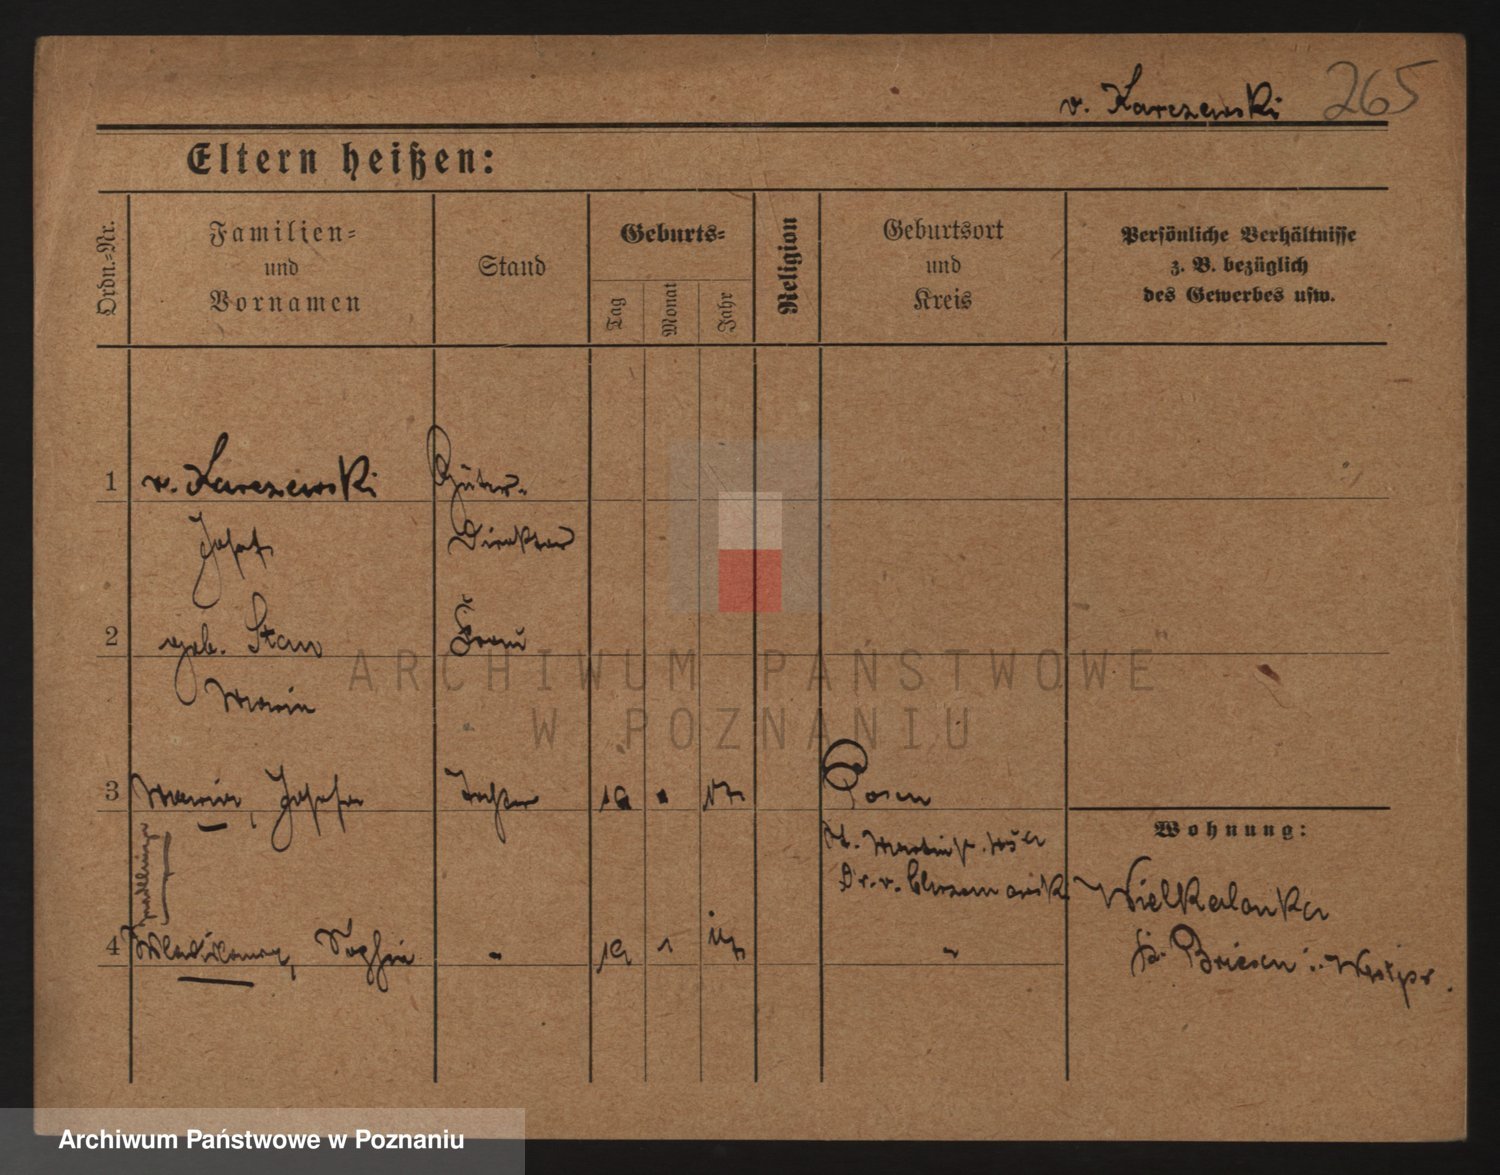 v. Karczewski 265
Eltern heißen:
Ordn.=Nr.
Familien=
und
Vornamen
Stand
Geburts=
Tag
Monat
Jahr
Religion
Geburtsort
und
Kreis
Persönliche Verhältnisse
z. B. bezüglich
des Gewerbes usw.
1 v. Karczewski Güter-
Josef Direktor
2 geb. Stan Frau
Maria
ARCHIWUM PAŃSTWOWE
W POZNANIU
3 Maria, Josefa Tochter 19 1 17 Posen
Zwillinge
St. Martinstr.
Dr. v.
Wohnung:
Wielkalonka
Kr. Briesen i. Westpr.
4 Sophia " 19 1 17 "
Archiwum Państwowe w Poznaniu